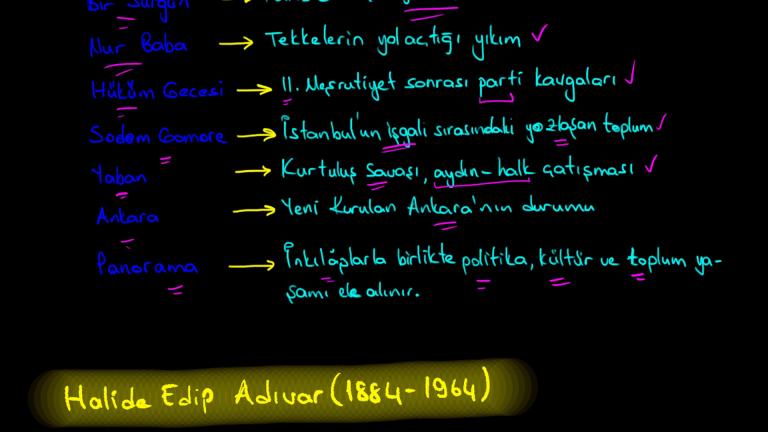 Bir Sürgün →
Nur Baba → Tekkelerin yol açtığı yıkım ✓
Hüküm Gecesi → II. Meşrutiyet sonrası parti kavgaları ✓
Sodom Gomore → İstanbul'un işgali sırasındaki yozlaşan toplum ✓
Yaban → Kurtuluş Savaşı, aydın-halk çatışması ✓
Ankara → Yeni Kurulan Ankara'nın durumu
Panorama → İnkılâplarla birlikte politika, kültür ve toplum ya-
şamı ele alınır.
Halide Edip Adıvar (1884-1964)